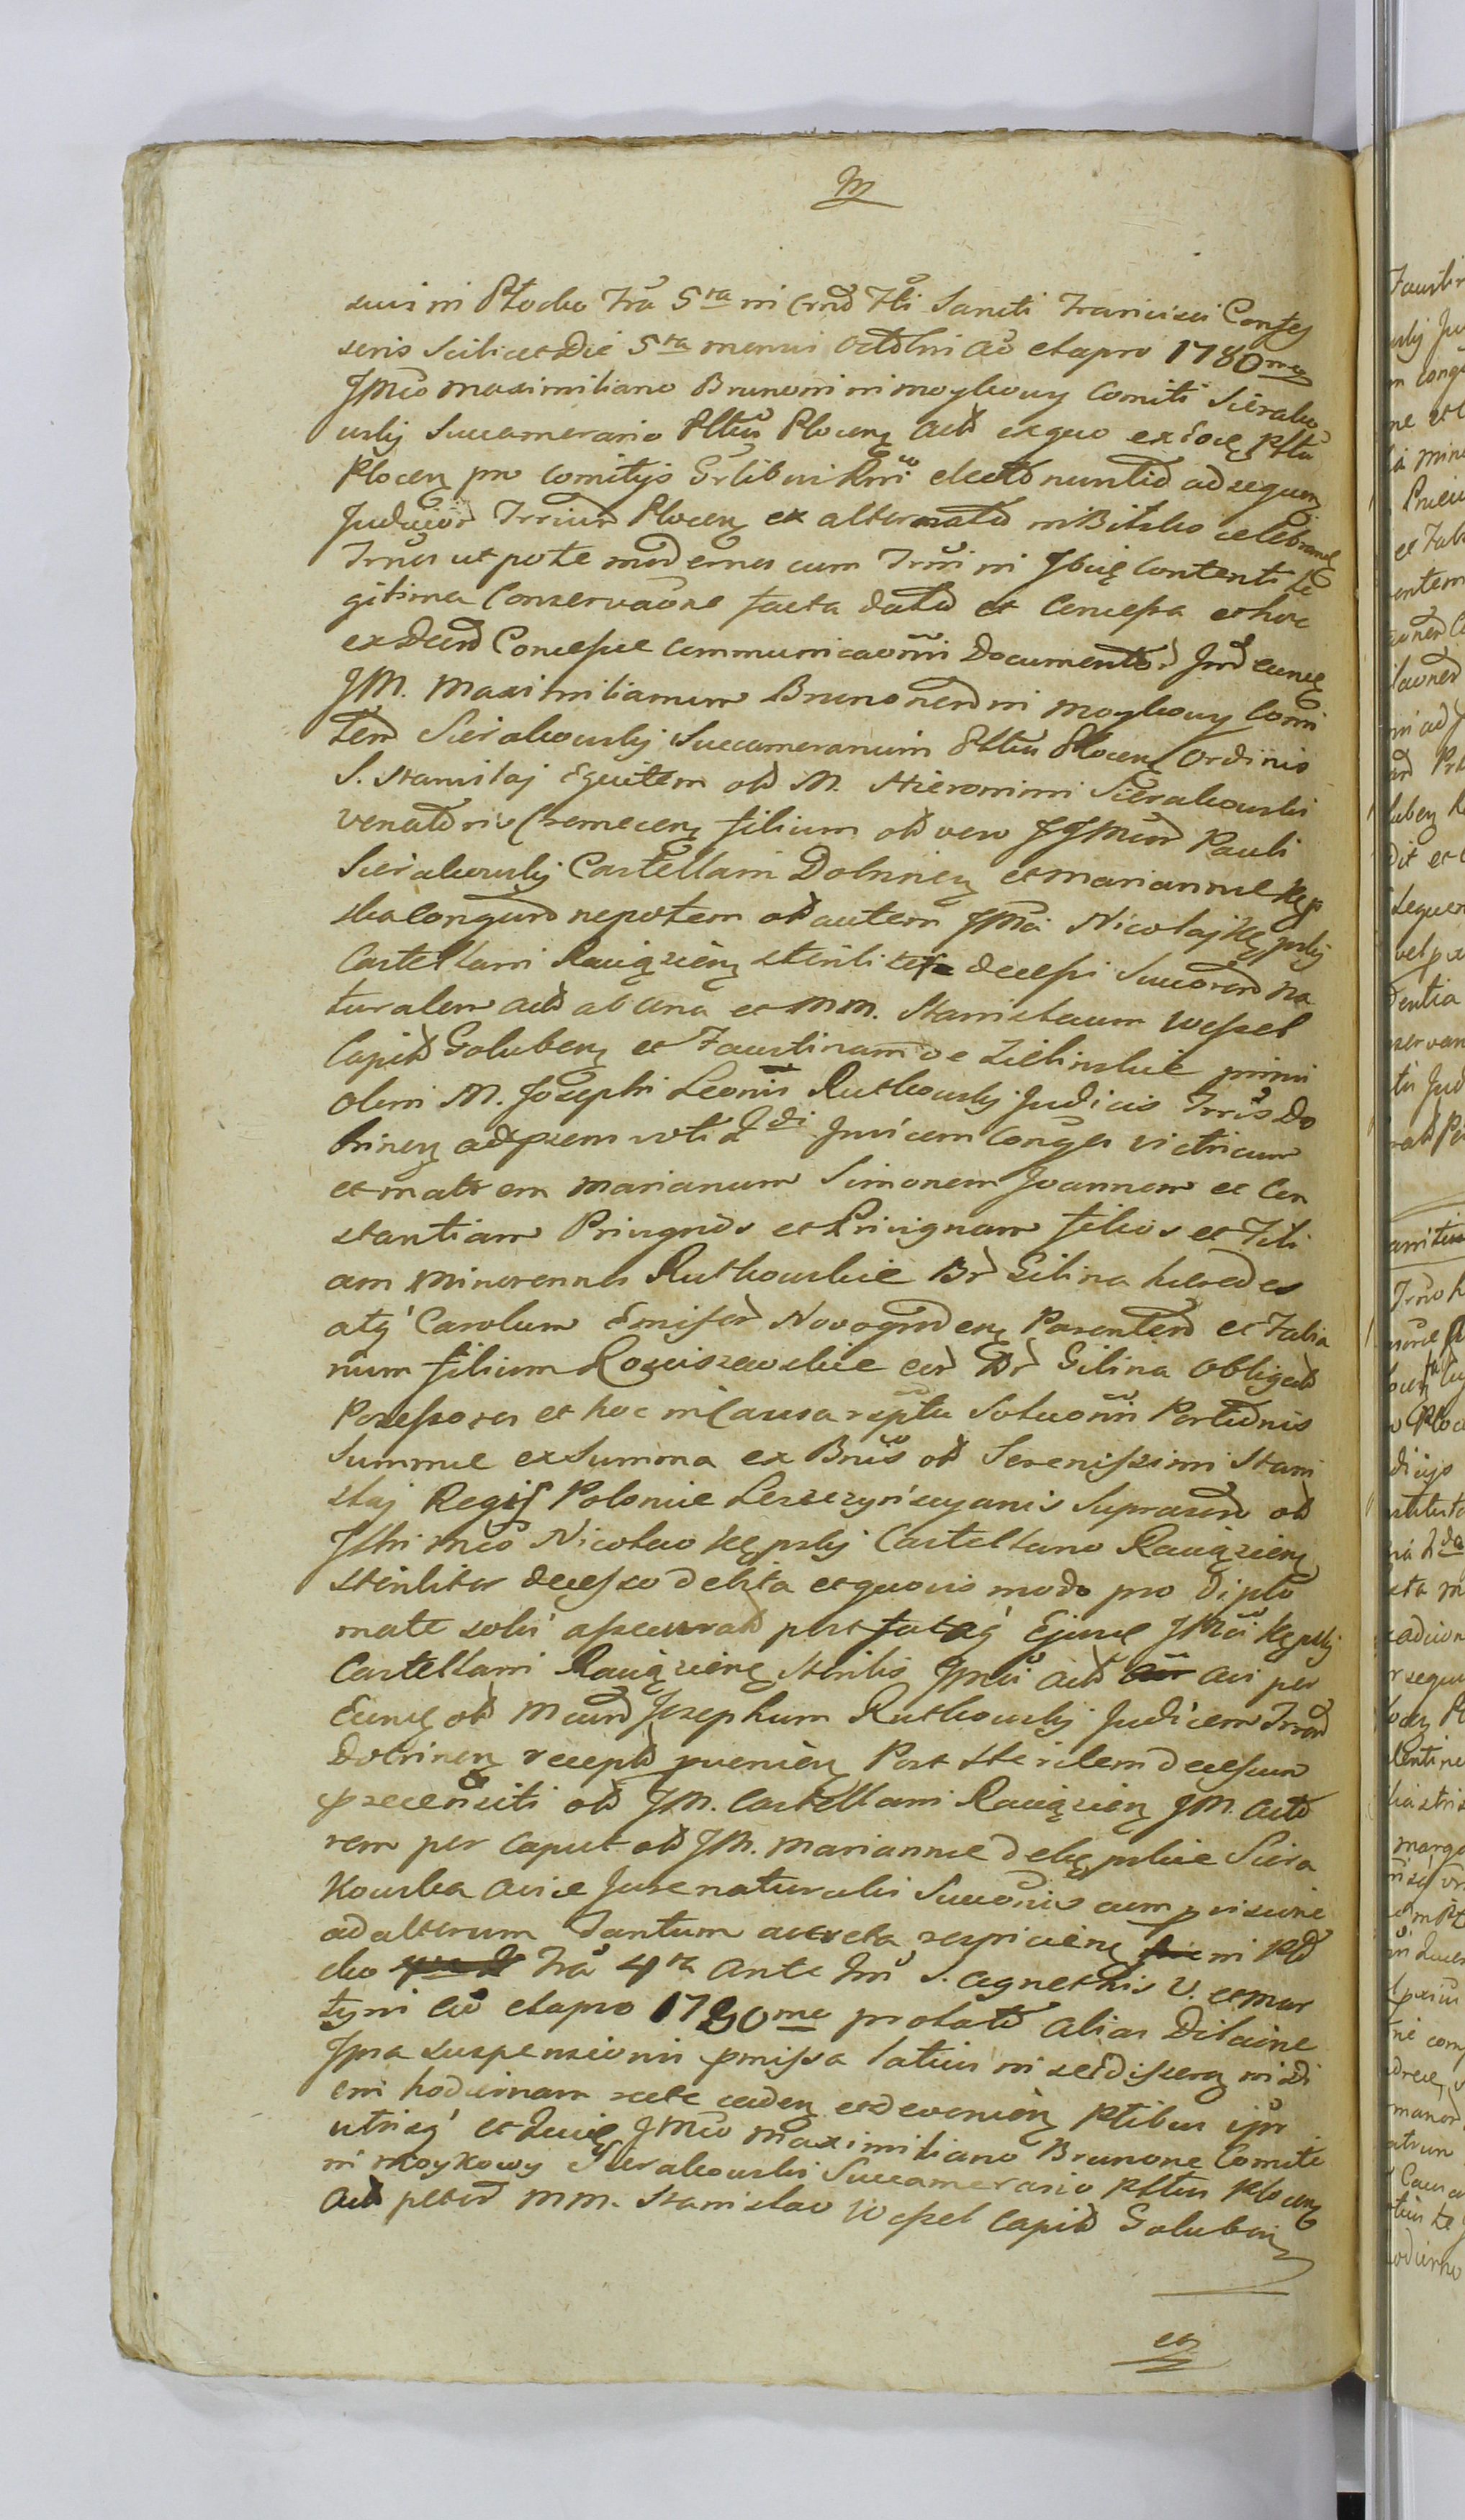 suis in Płocko Fra 5ta in Crnd Fti Sancti Francisci Confes
soris scilicet Die 5ta mensis Octobris ao et apro 1780mo
JMco Maximiliano Brunoni in Moykowy Comiti Sierako
wskij Succamerario Pltus Plocen actd ex quo ex eoe Pltu
Plocen pro Comitijs Grlibus electo nuntio ad sequen
Judicior Trrium Plocen ex alternata in Bielsko celebrand
Trnos utpote modernos cum Trmi in Contenti le
gitima Conservaone facta data et Concessa et hoc
ex Decr Concessae communicaonis Documentor Inr eunq
JM. Maximilianum Brunonem in Moykowy Comi
tem Sierakowskij Succamerarium Pltus Plocen Ordinis
S. Stanislaj Equitem old M. Hieronimi Sierakowski
venatoris Cremecen filium old vero JJMcor Pauli
Sierakowskij Castellani Dobrinen et Mariannae Kęp
ska Congum nepotem old autem JMci Nicolaj Kępskij
Castellani Raciązien sterili decessi Succorem na
turalem actd ab una et MM. Stanislaum Wessel
Capit Goluben et Faustinam de Zielinskie primi
olim M. Josephi Leonis Rutkowskij Judicis Trris Do
brinen ad praem voti 2di Invicem Conges victricum
et matrem Marianum Simonem Joannem et Con
stantiam Privignos et Privignam filios et Fili
am minorennes Rutkowskie Br Gilina heredes
atq Carolum Novogroden Parentem et Fabia
num filium Rosciszewskie eor Br Gilina obligat
Possessores et hoc in Causa rptu Soluonis Portionis
Summae ex Summa ex Bnis old Serenissimi Stani
slaj Regis Poloniae Leszczynscyanis Suprascr old
Illri Mco Nicolao Kępskij Castellano Raciązien
steriliter decesso debita et quovis modo pro diplo
mate solvi assecurat post fataq Ejusq JMci Kępskij
Castellani Raciązien sterilis JMci actd avi per
Eunq old M cum Josephum Rutkowskij Judicem Trrm
Dobrinen recepta pvenien Post sterilem decessum
praecensiti old JM. Castellani Raciązien JM. acto
rem per caput old JM. Mariannae de Kępskie Siera
kowska aviae Jure naturalis Succonis cum pvisione
ad alterum Tantum accreta respicien in Pło
cko Fra 4ta Ante Fm S. Agnethis V. et mar
tyris ao et apro 1780mo prolato alias Dilaone
Ipsa suspensionis pmissa latius in se disseren in di
em hodiernam recte caden et devenien Ptibus ipsr
utrisq et Inviq JMco Maximiliano Brunone Comite
in Moykowy Sierakowski Succamerario Pltus Plocen
act petit MM. Stanislao Wessel Capit Goluben
et